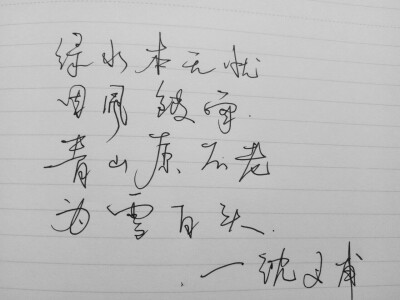 绿水本无忧
因风皱面.
青山原不老
为雪白头.
—沈文甫